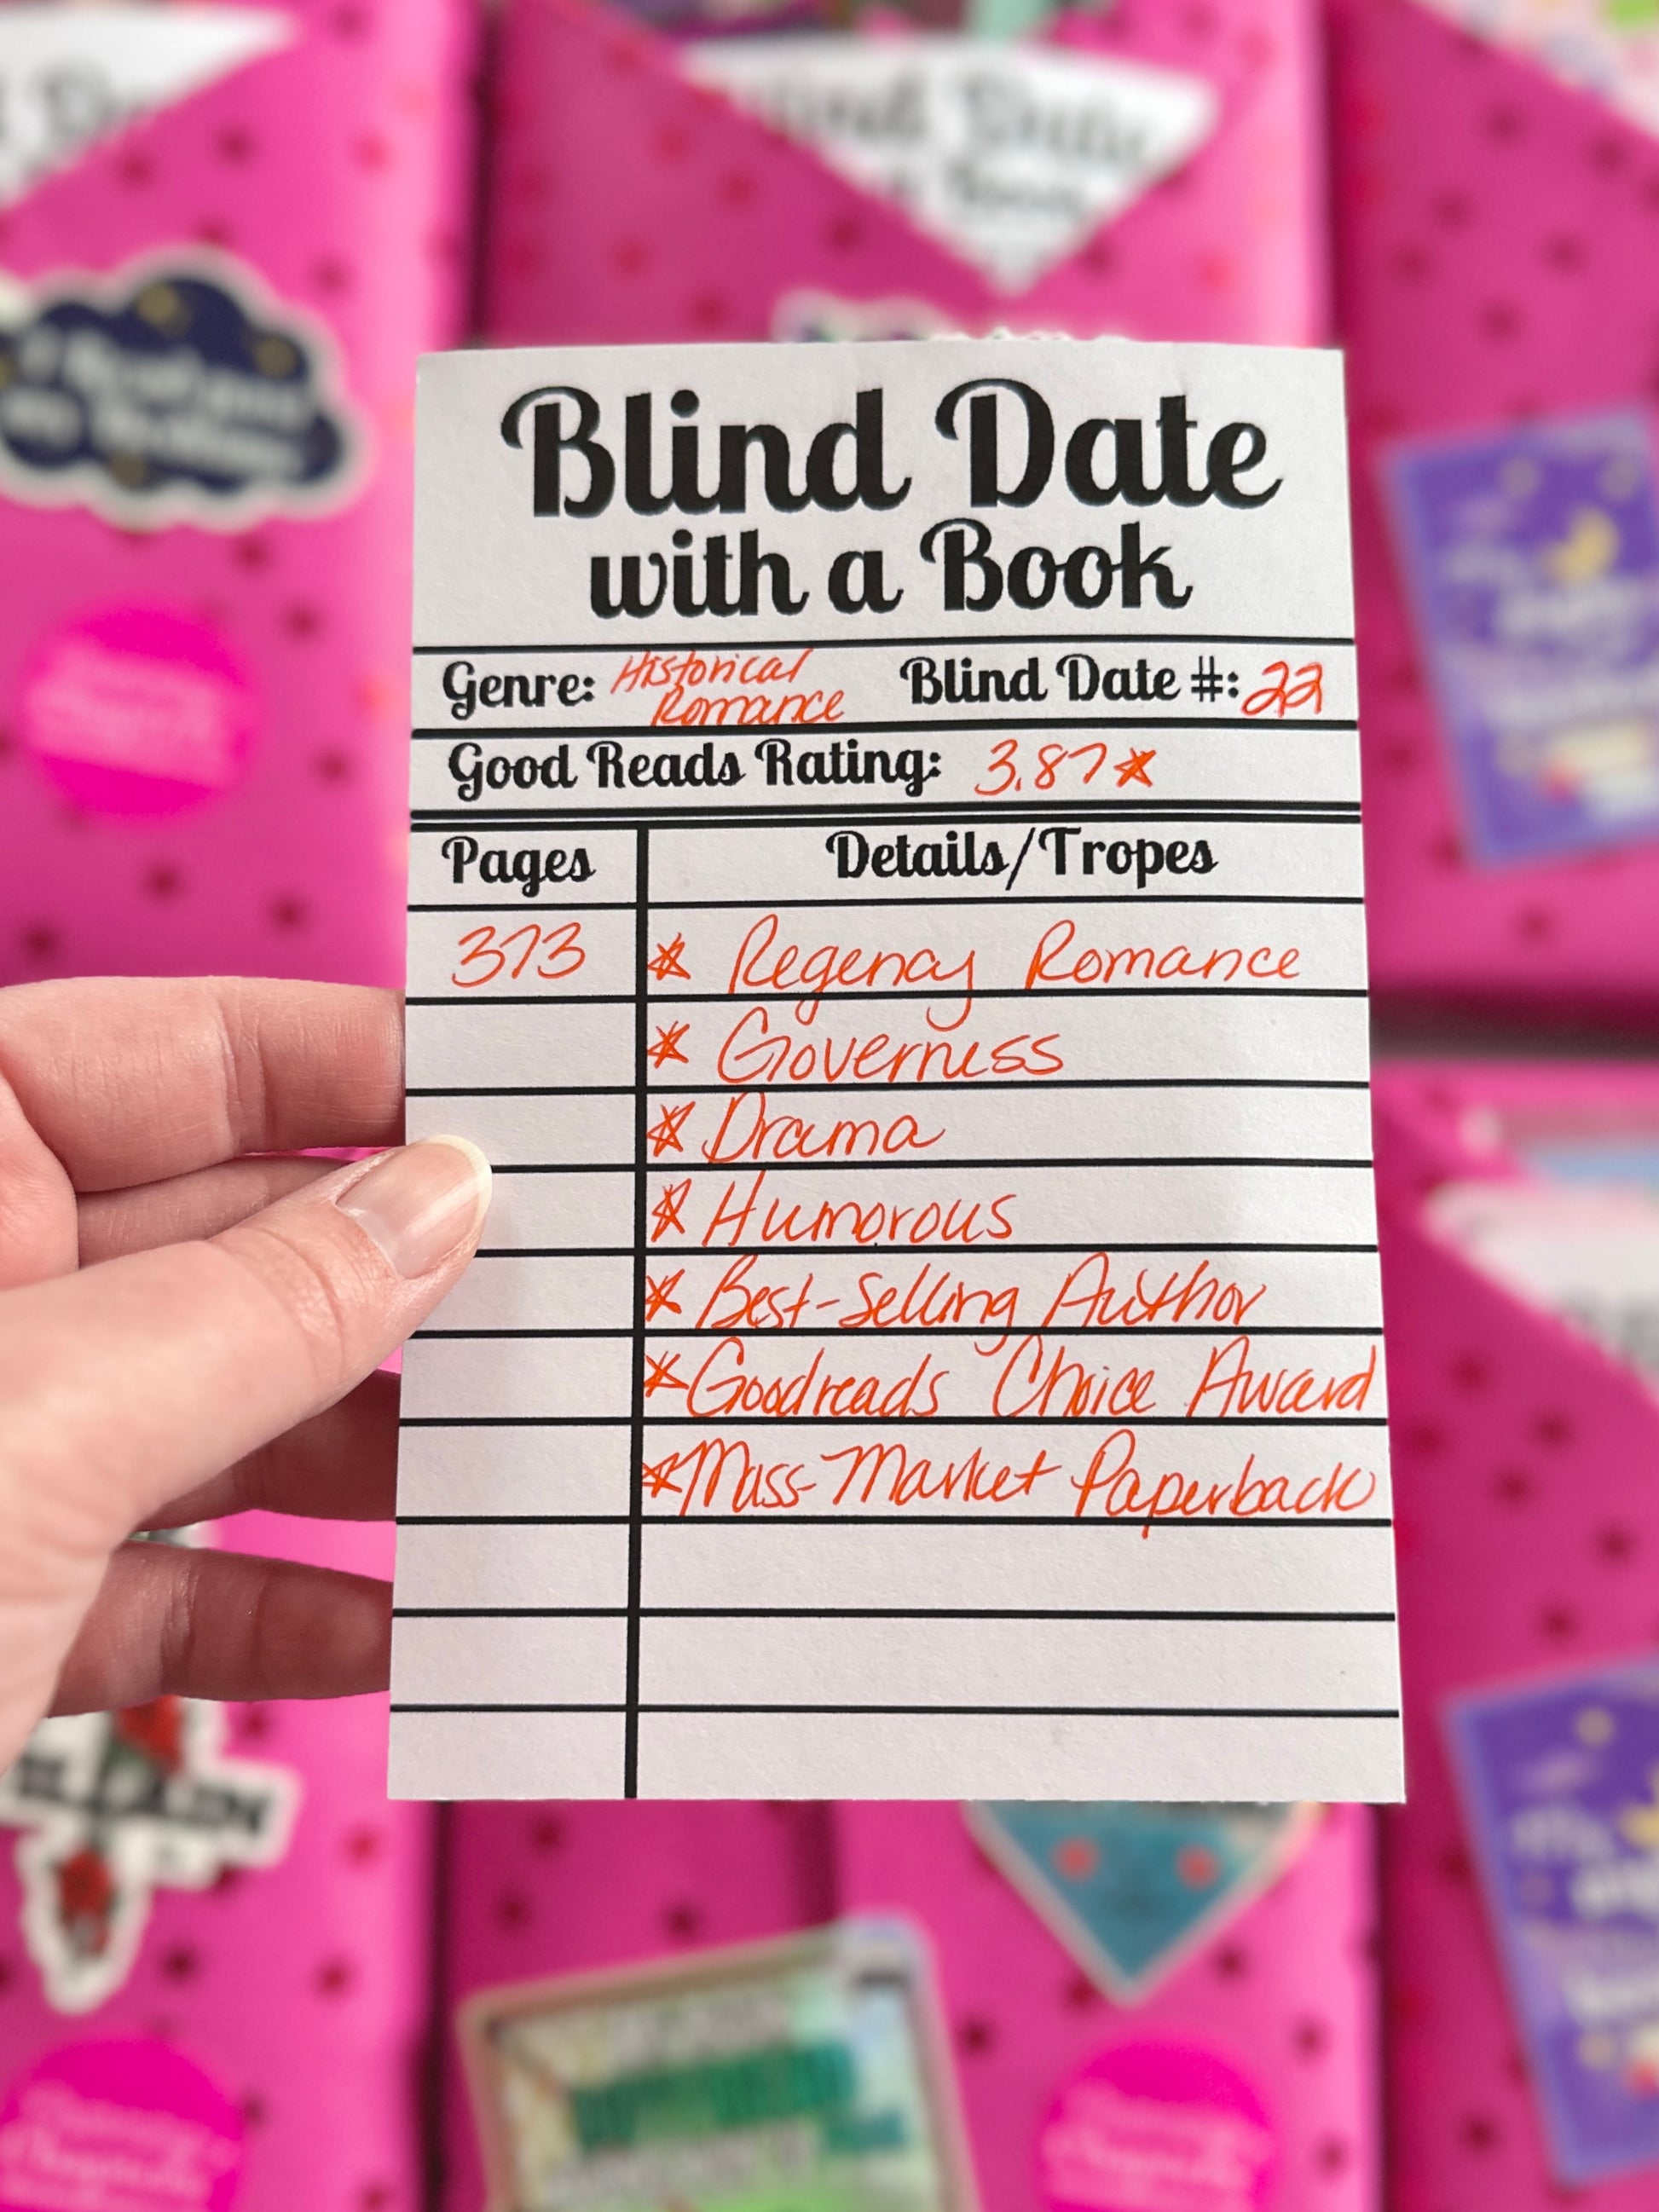 Blind Date
with a Book
Genre: Historical Romance Blind Date #: 22
Good Reads Rating: 3.87★
Pages Details/Tropes
373 ★ Regency Romance
★ Governess
★ Drama
★ Humorous
★ Best-Selling Author
★ Goodreads Choice Award
★ Mass-Market Paperback